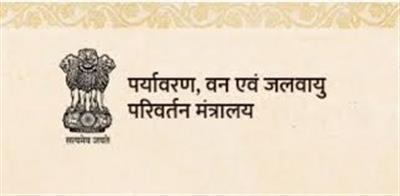 पर्यावरण, वन एवं जलवायु
परिवर्तन मंत्रालय
सत्यमेव जयते